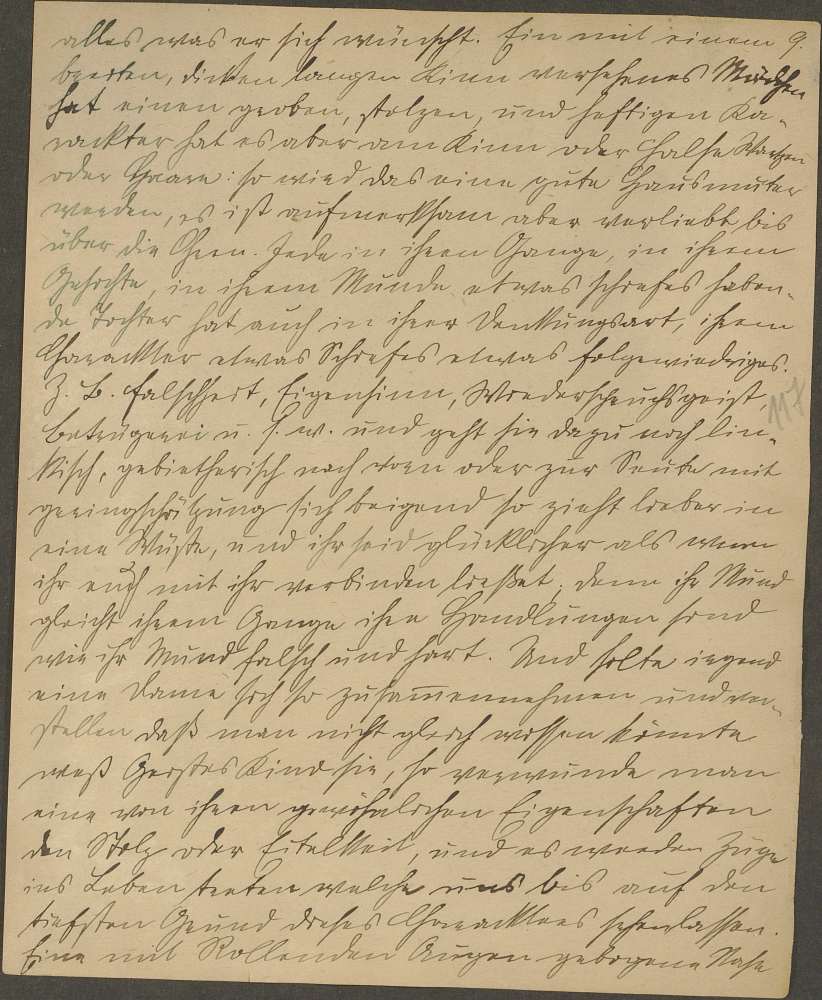 alles was er sich wünscht. Ein mit einem 9.
breiten, dicken langen Kinn versehenes Mädchen
hat einen groben, stolzen, und heftigen Ka-
rackter hat es aber am Kinn oder Halse Wartzen
oder Haare: so wird das eine gute Hausmuter
werden, es ist aufmerksam aber verliebt bis
über die Ohren. Jede in ihren Gange, in ihrem
Gesichte, in ihrem Munde etwas schiefes haben-
de Tochter hat auch in ihrer Denkungsart, ihrem
Charackter etwas Schiefes etwas folgewiedriges.
Z. B. Falschheit, Eigensinn, Wiederspruchsgeist,
Betrügerei u. s. w. und geht sie dazu noch lin-
kisch, gebietherisch nach vorn oder zur Seite mit
geringschätzung sich beigend so zieht lieber in
eine Wüste, und ihr seid glücklicher als wenn
ihr euch mit ihr verbinden ließet; denn ihr Mund
gleicht ihrem Gange ihre Handlungen sind
wie ihr Mund falsch und hart. Und solte irgend
eine Dame sich so zusammennehmen und ver-
stellen daß man nicht gleich wissen könnte
weß Geistes Kind sie, so verwunde man
eine von ihren gewöhnlichen Eigenschaften
den Stolz oder Eitelkeit, und es werden Züge
ins Leben treten welche uns bis auf den
tiefsten Grund dieses Charackters sehen lassen.
Eine mit Rollenden Augen gebogene Nase
117